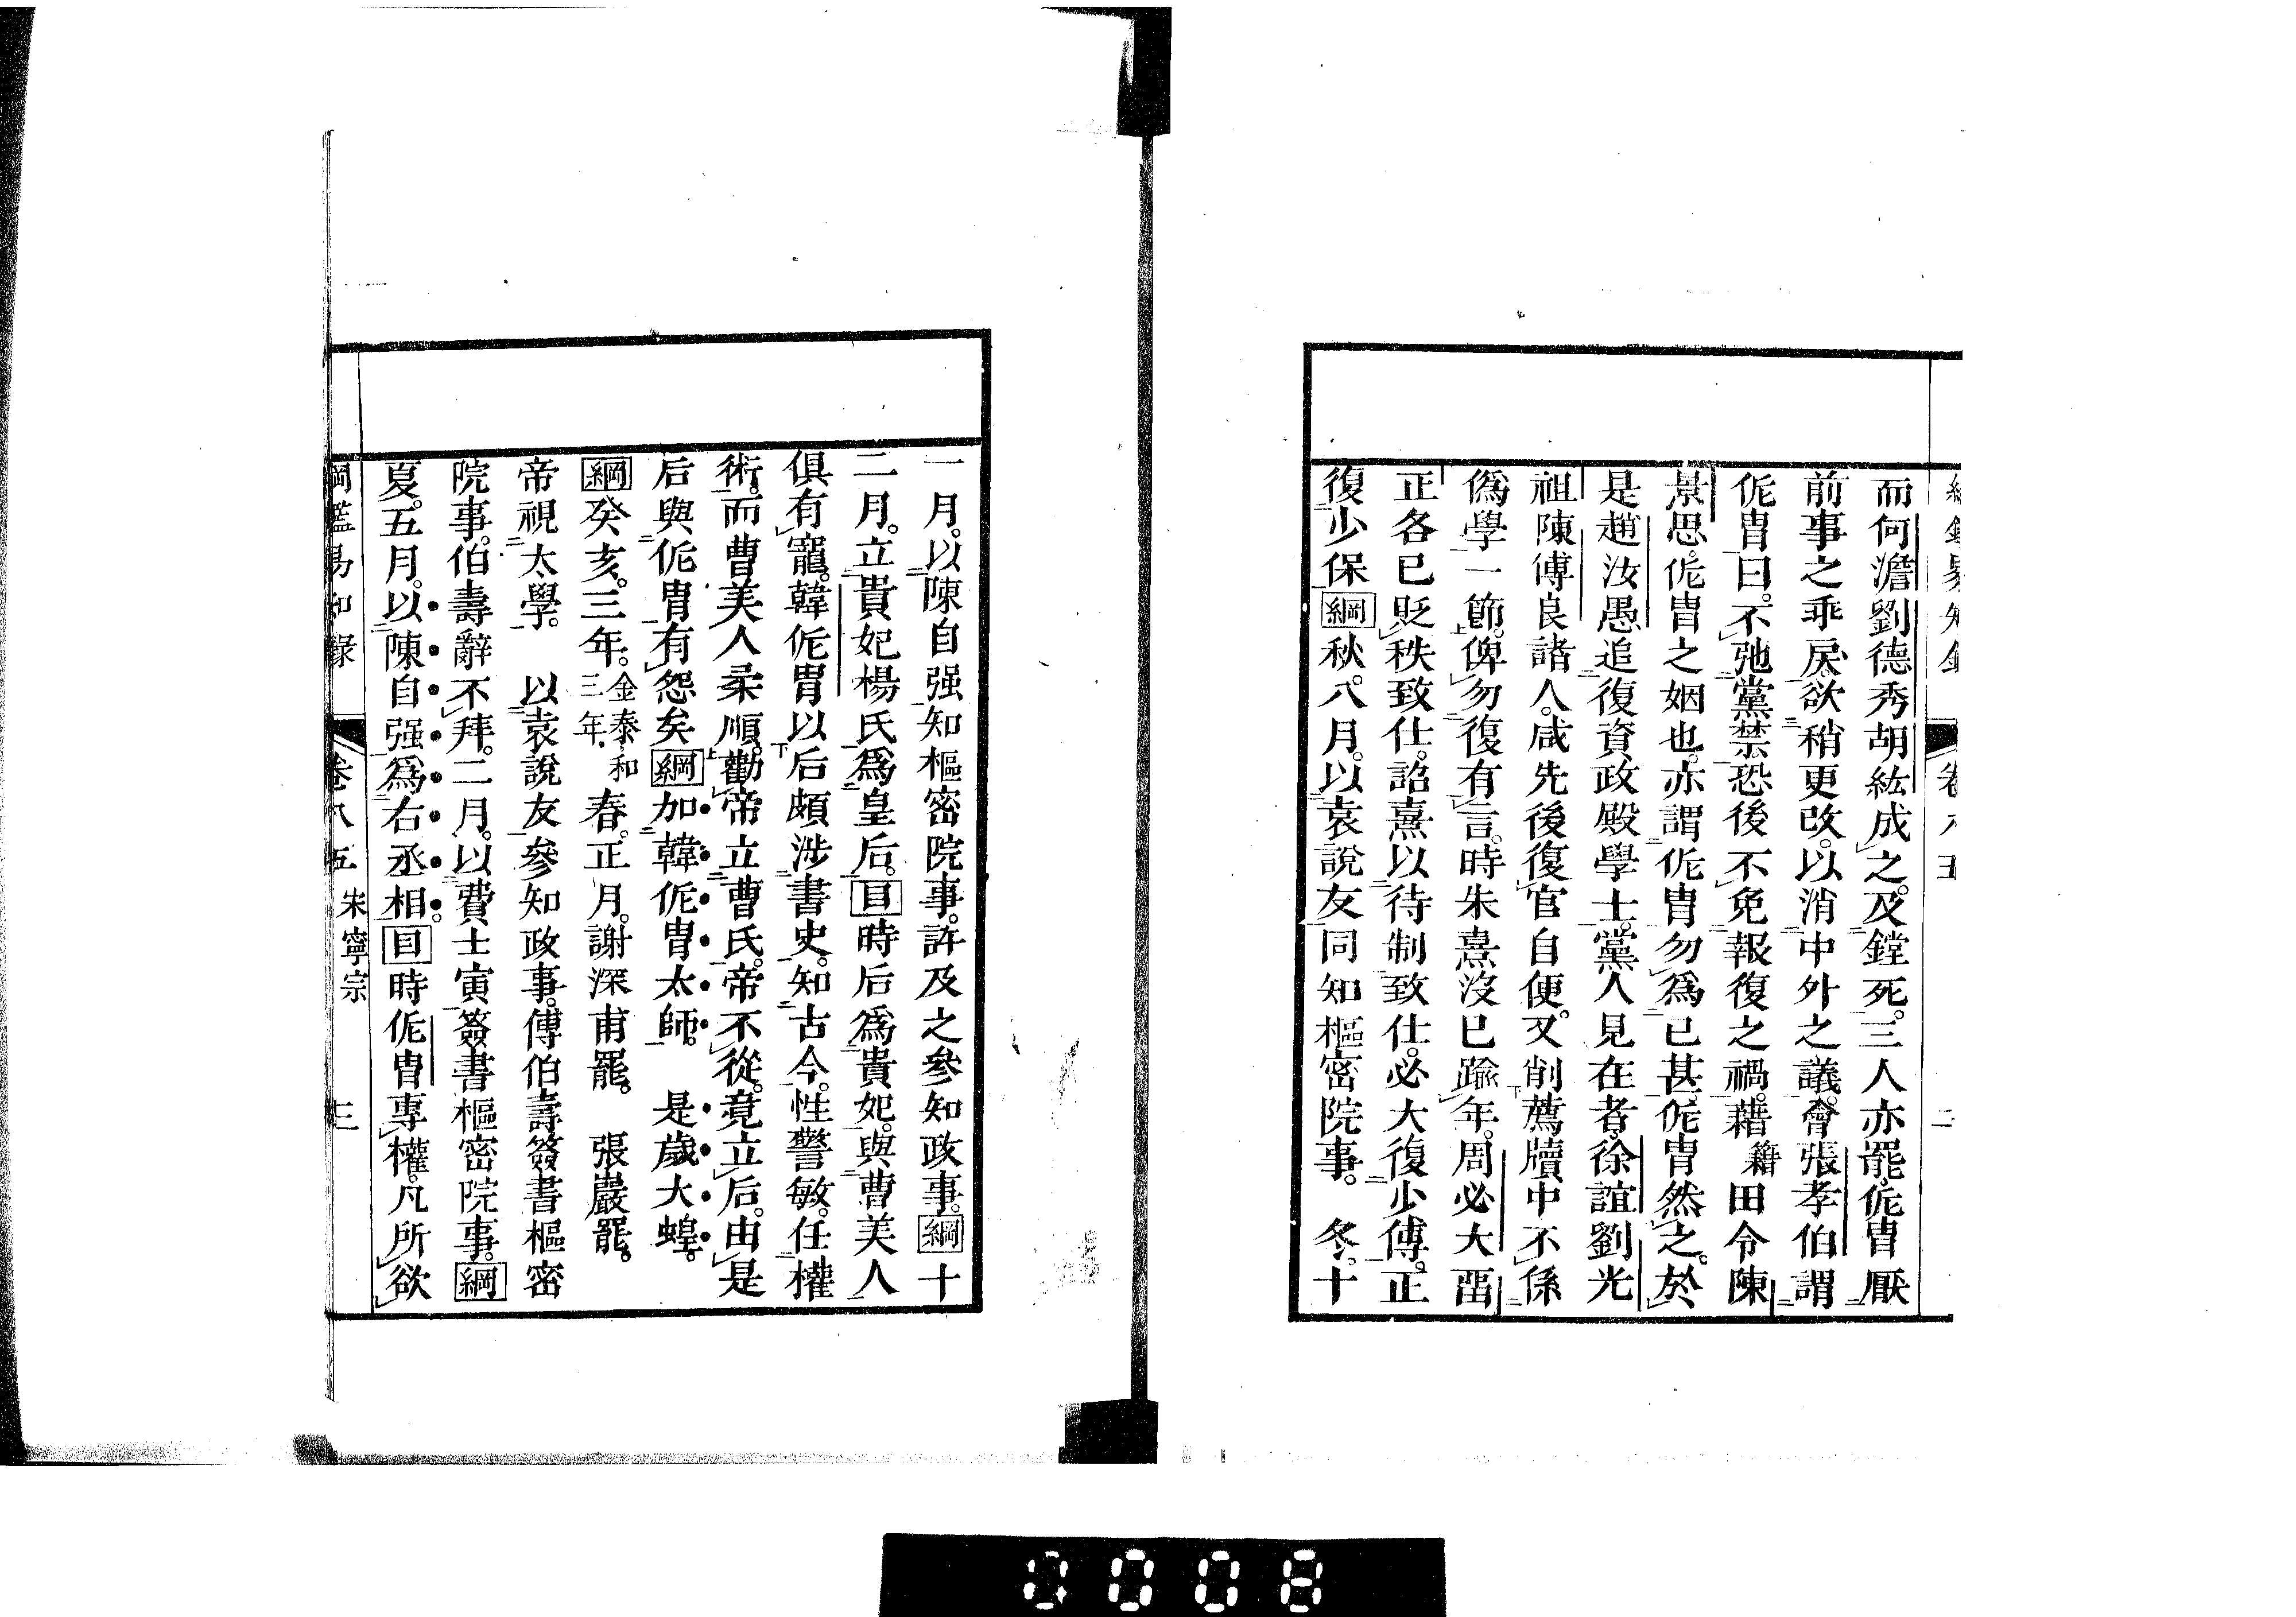 而何澹劉德秀胡紘成之。及鏜死。三人亦罷。侂冑厭
前事之乖戾。欲稍更改。以消中外之議。會張孝伯謂
侂冑曰。不弛黨禁。恐後不免報復之禍。藉籍田令陳
景思。侂冑之姻也。亦謂侂冑勿爲已甚。侂冑然之。於
是趙汝愚追復資政殿學士。黨人見在者。徐誼劉光
祖陳傅良諸人。咸先後復官自便。又削薦牘中不係
僞學一節。俾勿復有言。時朱熹沒已踰年。周必大畱
正各已貶秩致仕。詔熹以待制致仕。必大復少傅。正
復少保綱秋。八月。以袁說友同知樞密院事。 冬。十
一月。以陳自强知樞密院事。許及之參知政事。綱十
二月。立貴妃楊氏爲皇后。目時后爲貴妃。與曹美人
俱有寵。韓侂冑以后頗涉書史。知古今。性警敏。任權
術。而曹美人柔順。勸帝立曹氏。帝不從。竟立后。由是
后與侂冑有怨矣綱加韓侂冑太師。 是歲大蝗。
綱癸亥。三年。金泰和三年。春。正月。謝深甫罷。 張巖罷。
帝視太學。 以袁說友參知政事。傅伯壽簽書樞密
院事。伯壽辭不拜。二月。以費士寅簽書樞密院事。綱
夏。五月。以陳自强爲右丞相。目時侂冑專權。凡所欲
綱鑑易知錄 卷八五 宋寧宗 三